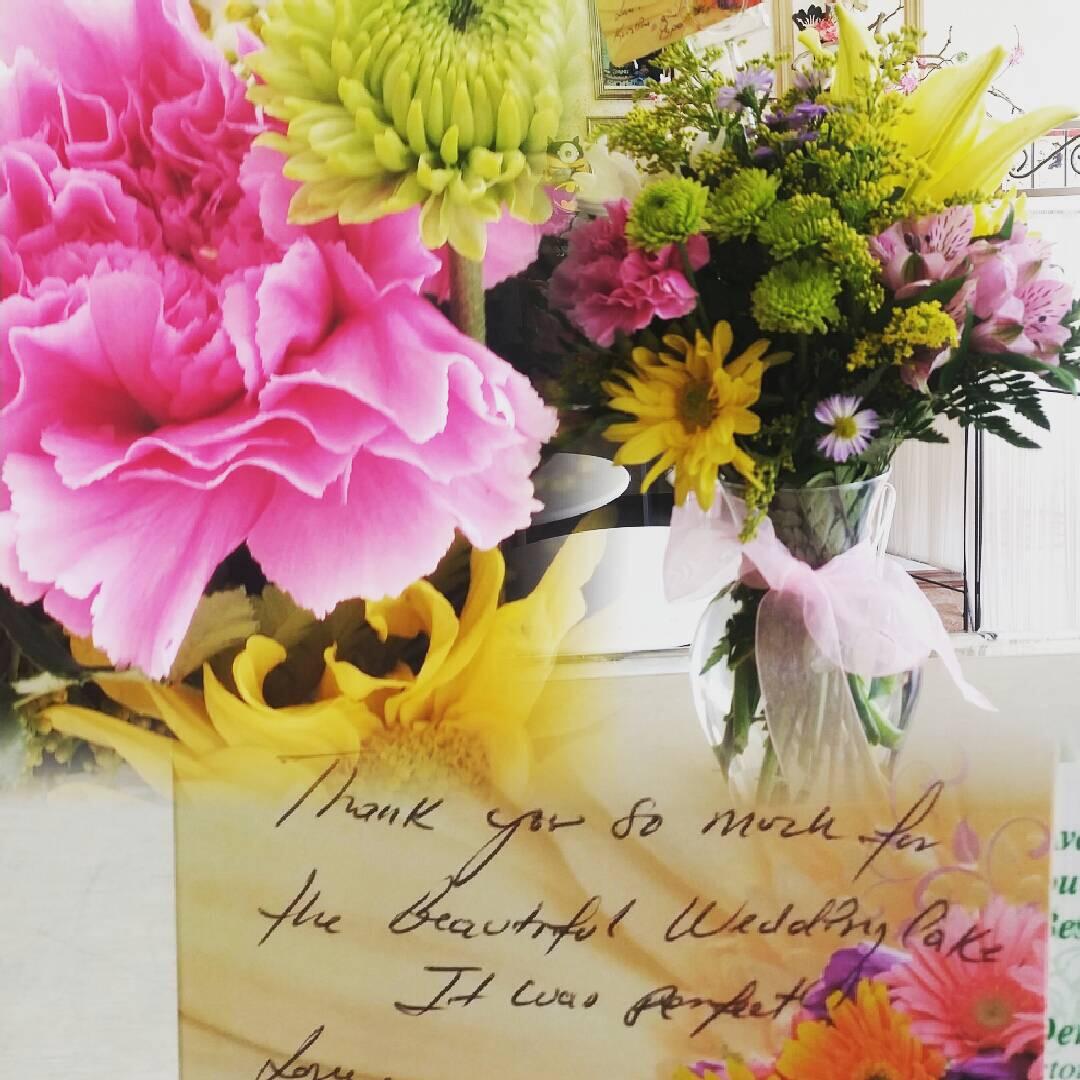 Thank you so much for
the Beautiful Wedding Cake
It was perfect
Love,